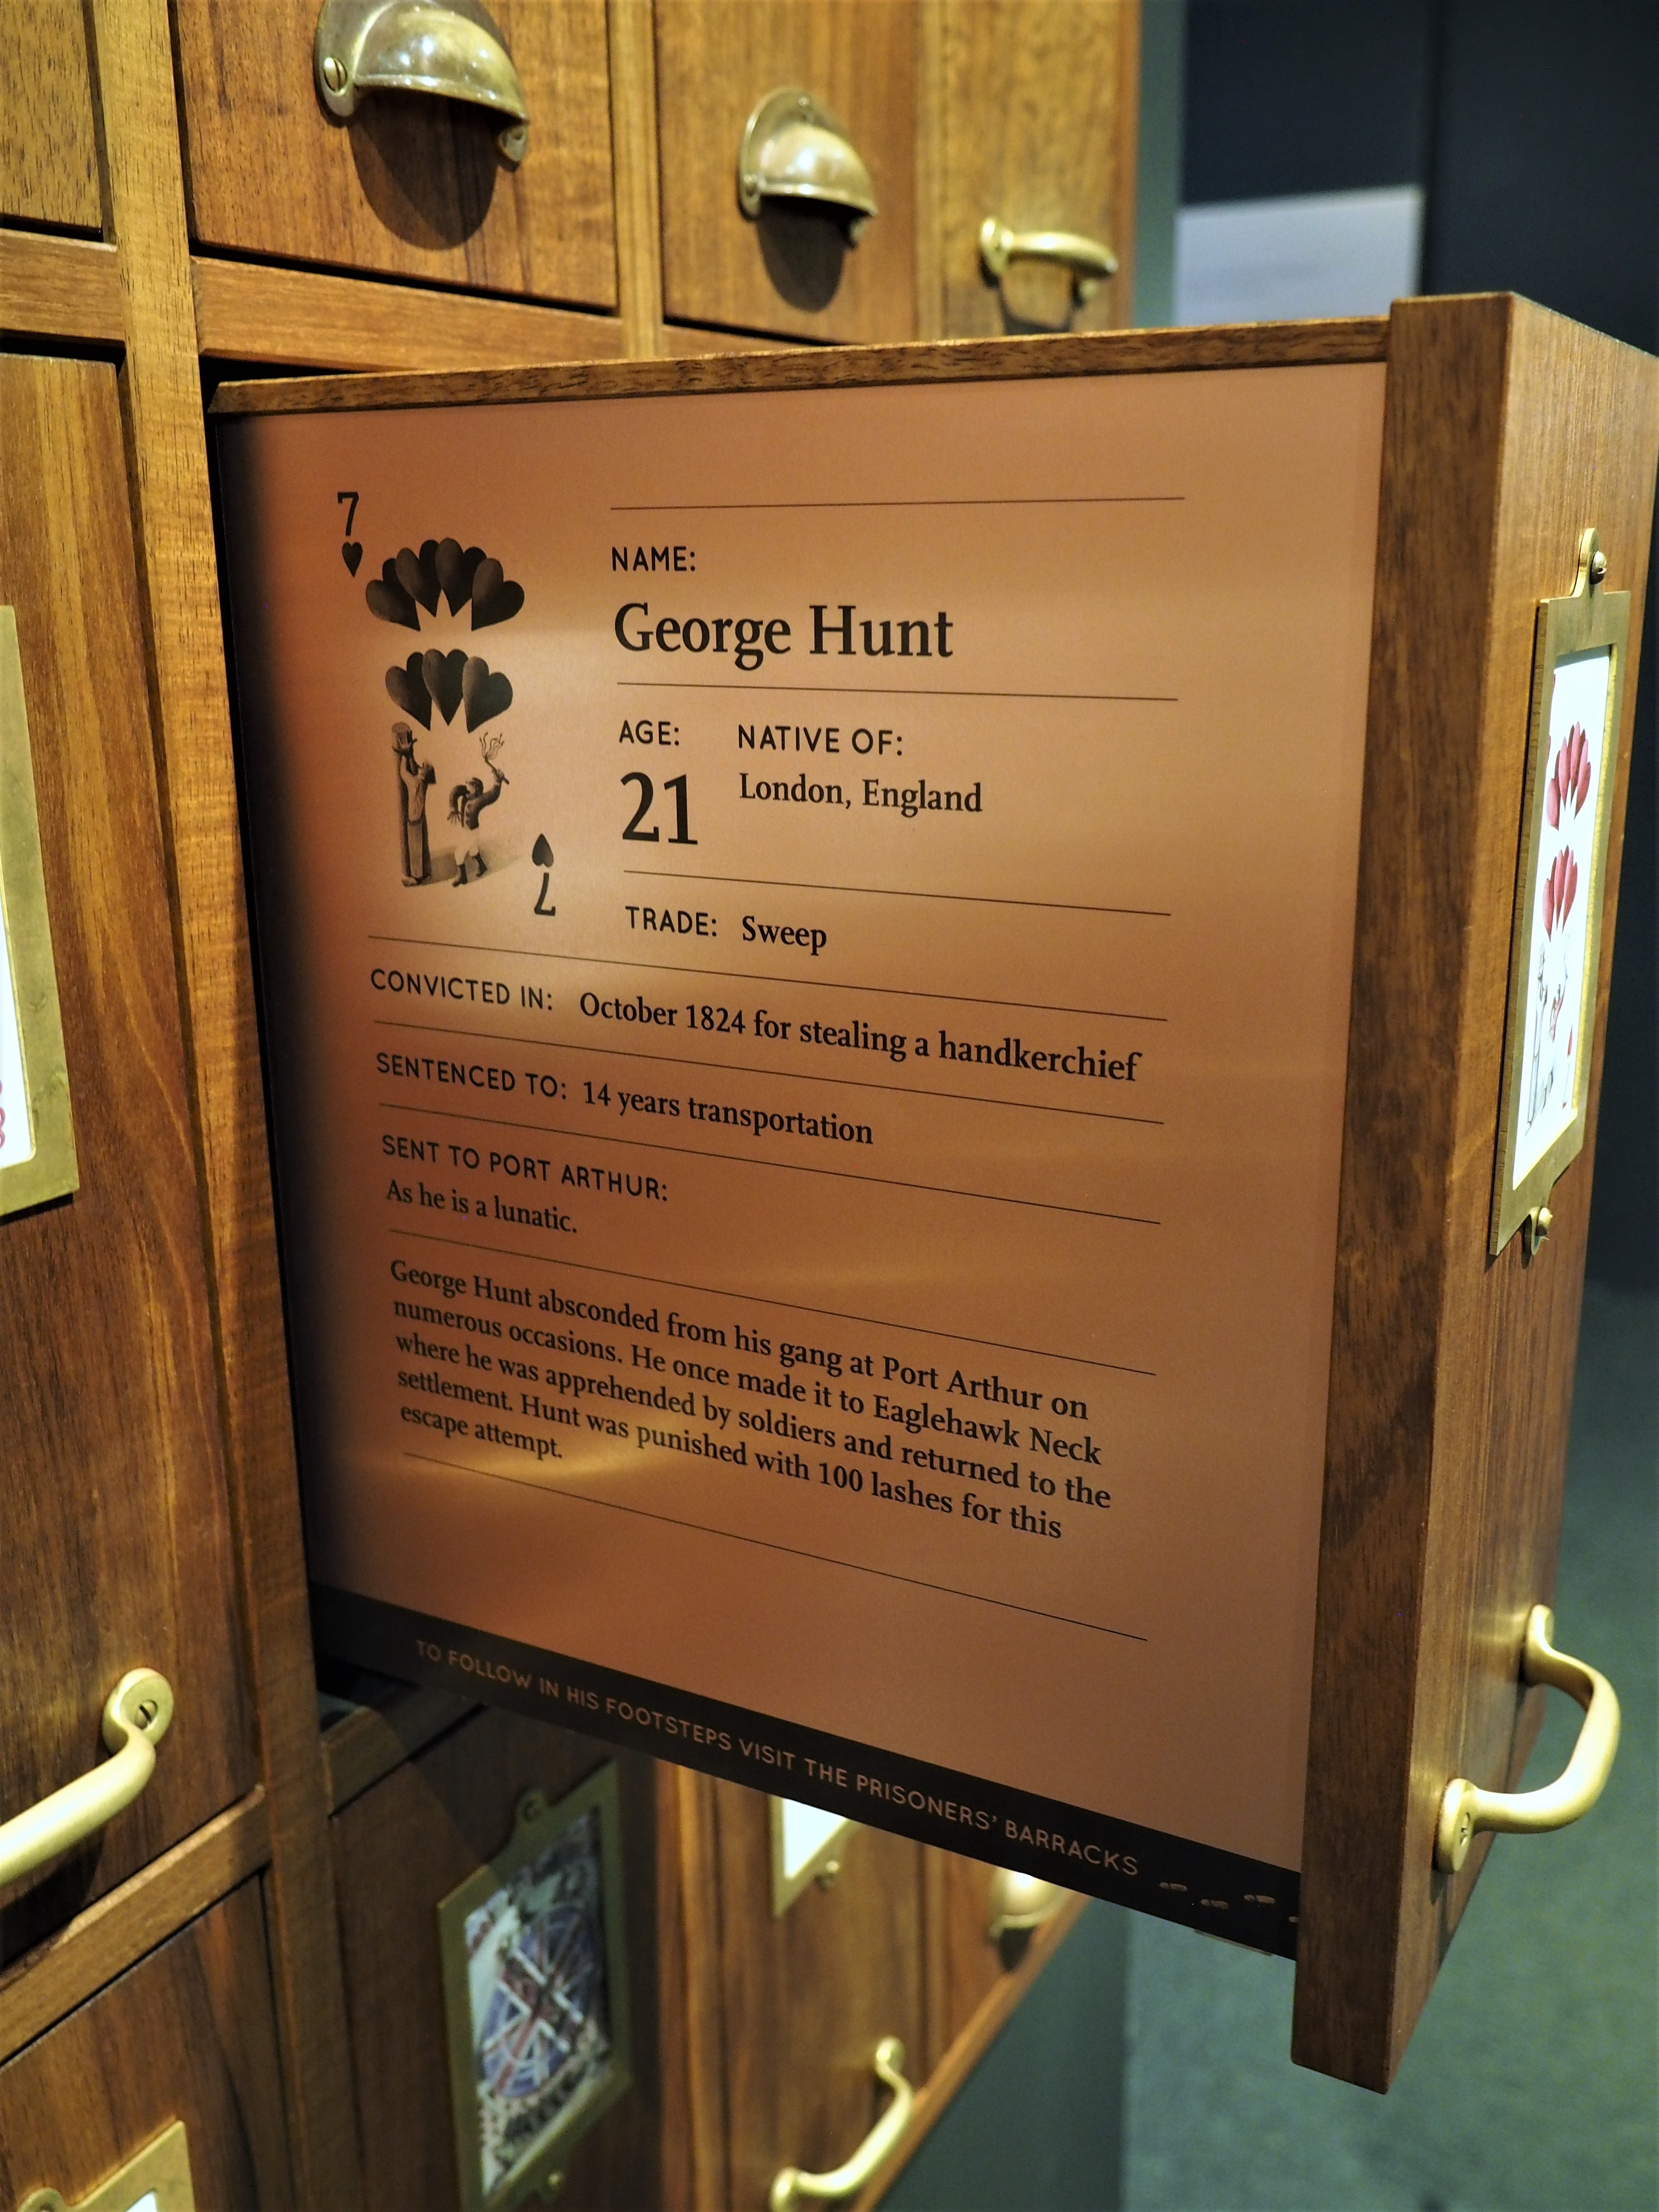 7
NAME:
George Hunt
AGE: NATIVE OF:
21 London, England
TRADE: Sweep
7
CONVICTED IN: October 1824 for stealing a handkerchief
SENTENCED TO: 14 years transportation
SENT TO PORT ARTHUR:
As he is a lunatic.
George Hunt absconded from his gang at Port Arthur on
numerous occasions. He once made it to Eaglehawk Neck
where he was apprehended by soldiers and returned to the
settlement. Hunt was punished with 100 lashes for this
escape attempt.
TO FOLLOW IN HIS FOOTSTEPS VISIT THE PRISONERS' BARRACKS